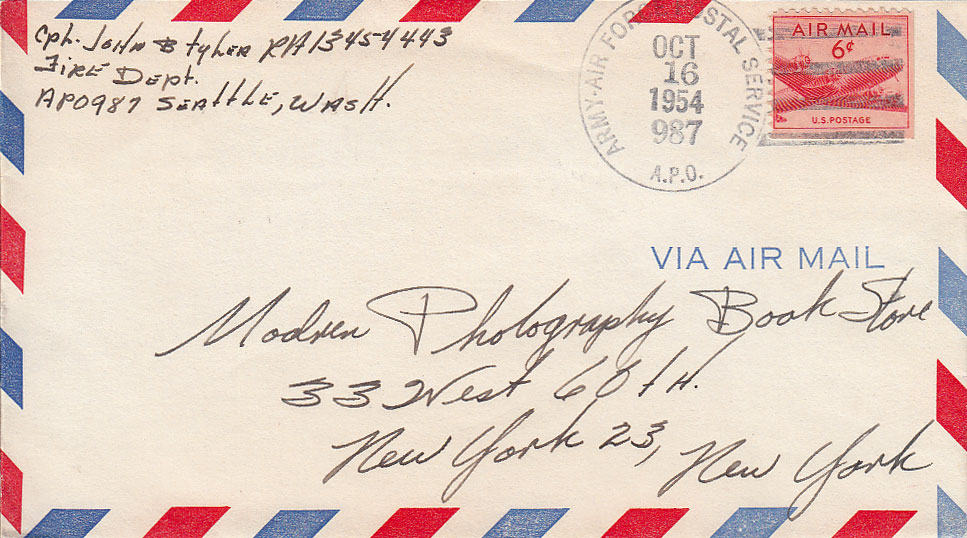 Cpl. John B Tyler RA13454443
Fire Dept.
APO987 Seattle, Wash.
ARMY-AIR FORCE POSTAL SERVICE
OCT
16
1954
987
A.P.O.
AIR MAIL
6¢
U.S. POSTAGE
VIA AIR MAIL
Modren Photography Book Store
33 West 60th.
New York 23, New York